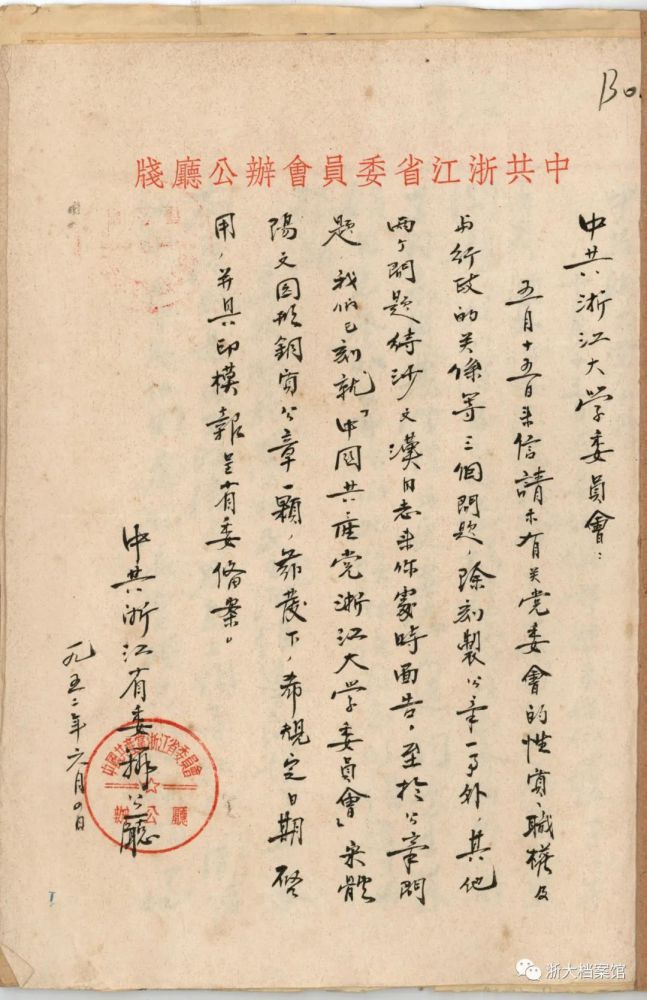 Bo.
中共浙江省委員會辦公廳牋
中共浙江大学委員會：
五月十五日来信請示有关党委會的性質、職權及
与行政的关係等三個問題，除刻製公章一事外，其他
两个問題待沙文漢同志来你處時面告，至於公章問
題，我们已刻就「中國共产党浙江大学委員會」宋體
陽文圆形銅質公章一顆，茲發下，希規定日期啓
用，并具印模報呈省委俻案。
中共浙江省委辦公廳
一九五二年六月四日
中國共產黨浙江省委員會
辦公廳
浙大档案馆